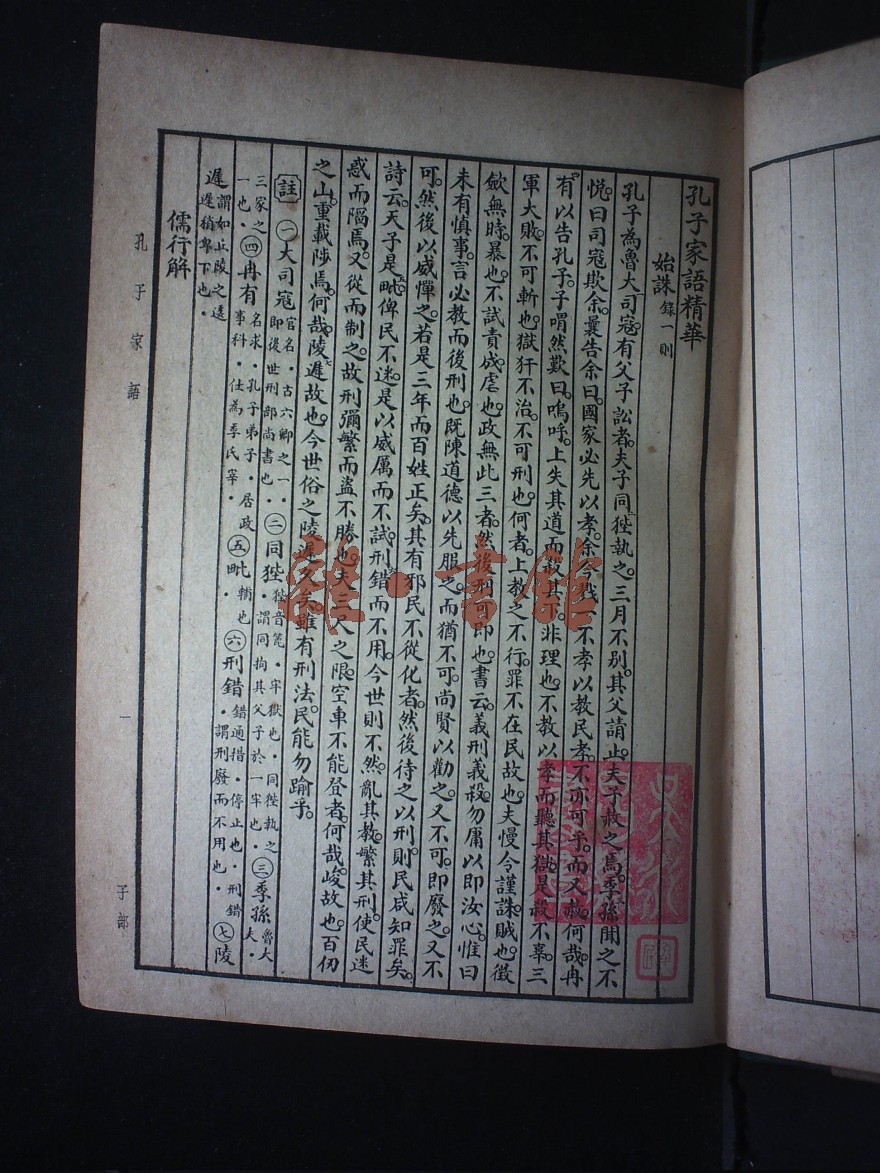 孔子家語精華
始誅 錄一則
孔子為魯大司寇。有父子訟者。夫子同狴執之。三月不別。其父請止。夫子赦之焉。季孫聞之不
悅。曰司寇欺余。曩告余曰。國家必先以孝。余今戮一不孝以教民孝。不亦可乎。而又赦。何哉。冉
有以告孔子。子喟然歎曰。嗚呼。上失其道而殺其下。非理也。不教以孝而聽其獄。是殺不辜。三
軍大敗。不可斬也。獄犴不治。不可刑也。何者。上教之不行。罪不在民故也。夫慢令謹誅。賊也。徵
斂無時。暴也。不試責成。虐也。政無此三者。然後刑可即也。書云。義刑義殺。勿庸以即汝心。惟曰
未有慎事。言必教而後刑也。既陳道德以先服之。而猶不可。尚賢以勸之。又不可。即廢之。又不
可。然後以威憚之。若是三年而百姓正矣。其有邪民不從化者。然後待之以刑。則民咸知罪矣。
詩云。天子是毗。俾民不迷。是以威厲而不試。刑錯而不用。今世則不然。亂其教。繁其刑。使民迷
惑而陷焉。又從而制之。故刑彌繁而盜不勝也。夫三尺之限。空車不能登者。何哉。峻故也。百仞
之山。重載陟焉。何哉。陵遲故也。今世俗之陵遲久矣。雖有刑法。民能勿踰乎。
註 ㊀大司寇 官名・古六卿之一・即後世刑部尚書也・ ㊁同狴 狴音篦・牢獄也・同狴執之・謂同拘其父子於一牢也・ ㊂季孫 魯大夫・
三家之一也・ ㊃冉有 名求・孔子弟子・居政事科・仕為季氏宰・ ㊄毗 輔也・ ㊅刑錯 錯通措・停止也・刑錯・謂刑廢而不用也・ ㊆陵
遲 謂如丘陵之逶遲稍卑下也・
儒行解
孔子家語
一
子部
雅・書館